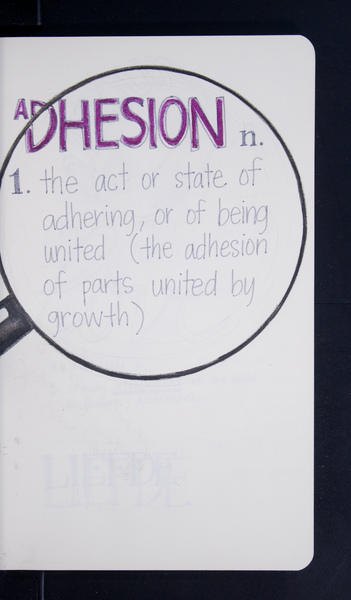 ADHESION n.
1. the act or state of
adhering, or of being
united (the adhesion
of parts united by
growth)
LIEFDE